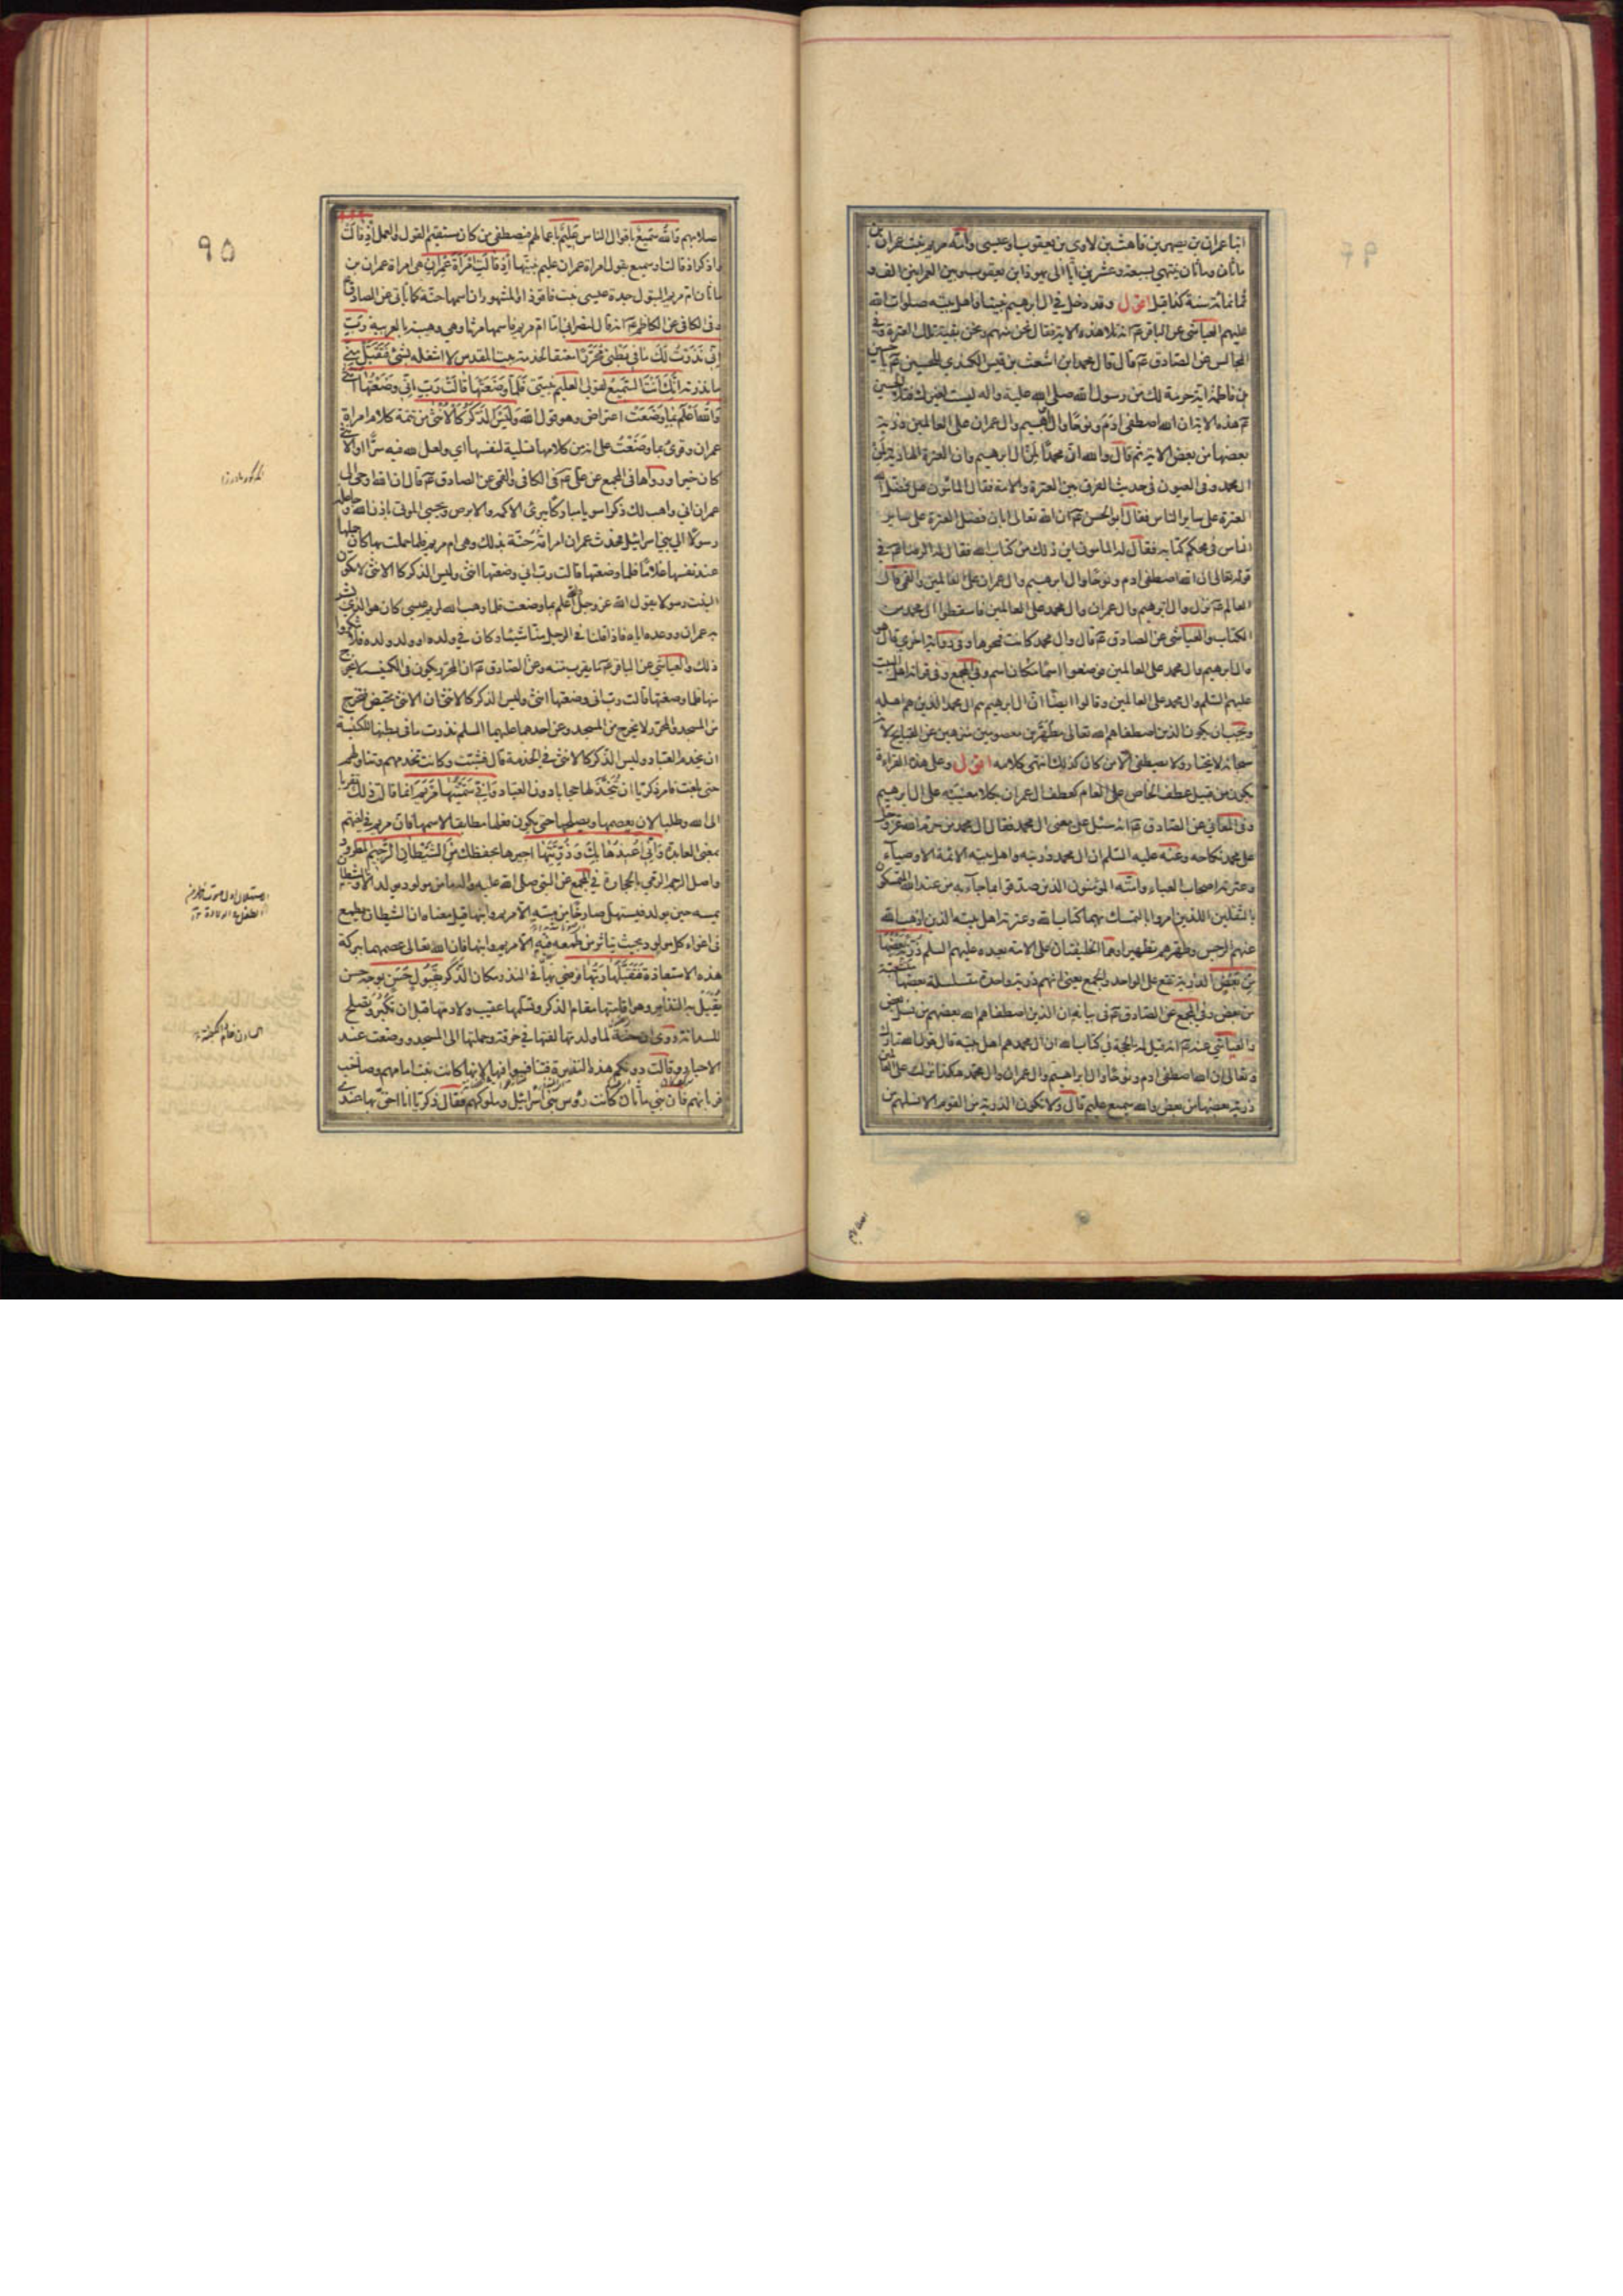 ابنا عمران بن يصهر بن قاهث بن لاوى بن يعقوب او عيسى وامّه مريم بنت عمران بن
ماثان وماثان ينتهى بسبعة وعشرين ابا الى يهودا بن يعقوب وبين العمرانين الف و
ثمانمائة سنة كذا قيل اقول وقد دخل فى ال ابرهيم نبينا واهل بيته صلوات الله
عليهم العياشى عن الباقر عم انه تلا هذه الاية فقال نحن منهم ونحن بقية تلك العترة وفى
المجالس عن الصادق عم قال قال محمد ابن اشعث بن قيس الكندى للحسين عم يا حسين
بن فاطمة اية حرمة لك من رسول الله صلى الله عليه واله ليست لغيرك فتلا الحسين
عم هذه الاية ان الله اصطفى ادم ونوحا وال ابرهيم وال عمران على العالمين ذرية
بعضها من بعض الاية ثم قال والله ان محمدا لمن ال ابرهيم وان العترة الهادية لمن
ال محمد وفى العيون فى حديث الفرق بين العترة والامة فقال المأمون هل فضل الله
العترة على ساير الناس فقال ابو الحسن عم ان الله تعالى ابان فضل العترة على ساير
الناس فى محكم كتابه فقال له المأمون اين ذلك من كتاب الله فقال له الرضا عم فى
قوله تعالى ان الله اصطفى ادم ونوحا وال ابرهيم وال عمران على العالمين والقمى قال
العالم عم نزل وال ابرهيم وال عمران وال محمد على العالمين فاسقطوا ال محمد من
الكتاب والعياشى عن الصادق عم قال وال محمد كانت فمحوها وفى رواية اخرى قال هو
وال ابرهيم وال محمد على العالمين فوضعوا اسما مكان اسم وفى المجمع وفى قراءة اهل البيت
عليهم السلم وال محمد على العالمين وقالوا ايضا ان ال ابرهيم هم ال محمد الذين هم اهله
ويجب ان يكون الذين اصطفاهم الله تعالى مطهرين معصومين منزهين عن القبايح لانه
سبحانه لا يختار ولا يصطفى الا من كان كذلك انتهى كلامه اقول وعلى هذه القراءة
يكون من قبيل عطف الخاص على العام كعطف ال عمران بكلا معنييه على ال ابرهيم
وفى المعانى عن الصادق عم انه سئل عن معنى ال محمد فقال ال محمد من حرم الله عز وجل
على محمد نكاحه وعنه عليه السلم ان ال محمد ذريته واهل بيته الائمة الاوصياء
وعترته اصحاب العباء وامته المؤمنون الذين صدقوا بما جاء به من عند الله المتمسكون
بالثقلين اللذين امروا بالتمسك بهما كتاب الله وعترته اهل بيته الذين اذهب الله
عنهم الرجس وطهرهم تطهيرا وهما الخليفتان على الامة بعده عليهم السلم ذرية بعضها
من بعض الذرية تقع على الواحد والجمع يعنى انهم ذرية واحدة متسلسلة بعضها متشعبة
من بعض وفى المجمع عن الصادق عم فى بيانه ان الذين اصطفاهم الله بعضهم من نسل بعض
والعياشى عنه عم انه قيل له ما الحجة فى كتاب الله ان ال محمد هم اهل بيته قال قول الله تبارك
وتعالى ان الله اصطفى ادم ونوحا وال ابراهيم وال عمران وال محمد هكذا نزلت على العالمين
ذرية بعضها من بعض والله سميع عليم قال ولا تكون الذرية من القوم الا نسلهم من
اصلابهم والله سميع باقوال الناس عليم باعمالهم فيصطفى من كان مستقيم القول والعمل اذ قالت
واذكر اذ قالت او سميع بقول امراة عمران عليم بنيتها اذ قالت امراة عمران هى امراة عمران بن
ماثان ام مريم البتول جدة عيسى بنت فاقوذا المشهور ان اسمها حنة كما ياتى عن الصادق عم
وفى الكافى عن الكاظم عم انه قال لنصرانى اما ام مريم فاسمها مرثا وهى وهيبة بالعربية رب
انى نذرت لك ما فى بطنى محررا معتقا لخدمة بيت المقدس لا اشغله بشئ فتقبل منى
ما نذرته انك انت السميع لقولى العليم بنيتى فلما وضعتها قالت رب انى وضعتها انثى
والله اعلم بما وضعت اعتراض وهو قول الله وليس الذكر كالانثى من تتمة كلام امراة
عمران وقرئ بما وضعت على انه من كلامها تسلية لنفسها اى ولعل لله فيه سرا او الانثى
كان خيرا ورواها فى المجمع عن على عم فى الكافى والقمى عن الصادق عم قال ان الله اوحى الى
عمران انى واهب لك ذكرا سويا مباركا يبرئ الاكمه والابرص ويحيى الموتى باذن الله وجاعله
رسولا الى بنى اسرائيل فحدث عمران امراته حنة بذلك وهى ام مريم فلما حملت بها كان حملها
عند نفسها غلاما فلما وضعتها قالت رب انى وضعتها انثى وليس الذكر كالانثى لا تكون
البنت رسولا يقول الله عز وجل والله اعلم بما وضعت فلما وهب الله لمريم عيسى كان هو الذى بشر
به عمران ووعده اياه فاذا قلنا فى الرجل منا شيئا وكان فى ولده او ولد ولده فلا تنكروا
ذلك والعياشى عن الباقر عم ما يقرب منه وعن الصادق عم ان المحرر يكون فى الكنيسة لا يخرج
منها فلما وضعتها قالت رب انى وضعتها انثى وليس الذكر كالانثى ان الانثى تحيض فتخرج
من المسجد والمحرر لا يخرج من المسجد وعن احدهما عليهما السلم نذرت ما فى بطنها للكنيسة
ان يخدم العباد وليس الذكر كالانثى فى الخدمة قال فشبت وكانت تخدمهم وتناولهم
حتى بلغت فامر زكريا ان تتخذ لها حجابا دون العباد وانى سميتها مريم انما قالت ذلك تقربا
الى الله وطلبا لان يعصمها ويصلحها حتى يكون فعلها مطابقا لاسمها فان مريم فى لغتهم
بمعنى العابدة وانى اعيذها بك وذريتها اجيرها بحفظك من الشيطان الرجيم المطرود
واصل الرجم الرمى بالحجارة فى المجمع عن النبى صلى الله عليه واله ما من مولود يولد الا والشيطان
يمسه حين يولد فيستهل صارخا من مسه الا مريم وابنها قيل معناه ان الشيطان يطمع
فى اغواء كل مولود بحيث يتاثر من طمعه فيه الا مريم وابنها فان الله تعالى عصمهما ببركة
هذه الاستعاذة فتقبلها ربها فرضى بها فى النذر مكان الذكر بقبول حسن بوجه حسن
يقبل به النذاير وهو اقامتها مقام الذكر وتسلمها عقيب ولادتها قبل ان تكبر وتصلح
للسدانة روى ان حنة لما ولدتها لفتها فى خرقة وحملتها الى المسجد ووضعت عند
الاحبار وقالت دونكم هذه النذيرة فتنافسوا فيها لانها كانت بنت امامهم وصاحب
قربانهم فان بنى ماثان كانت رؤس بنى اسرائيل وملوكهم فقال زكريا انا احق بها عندى
٩٥